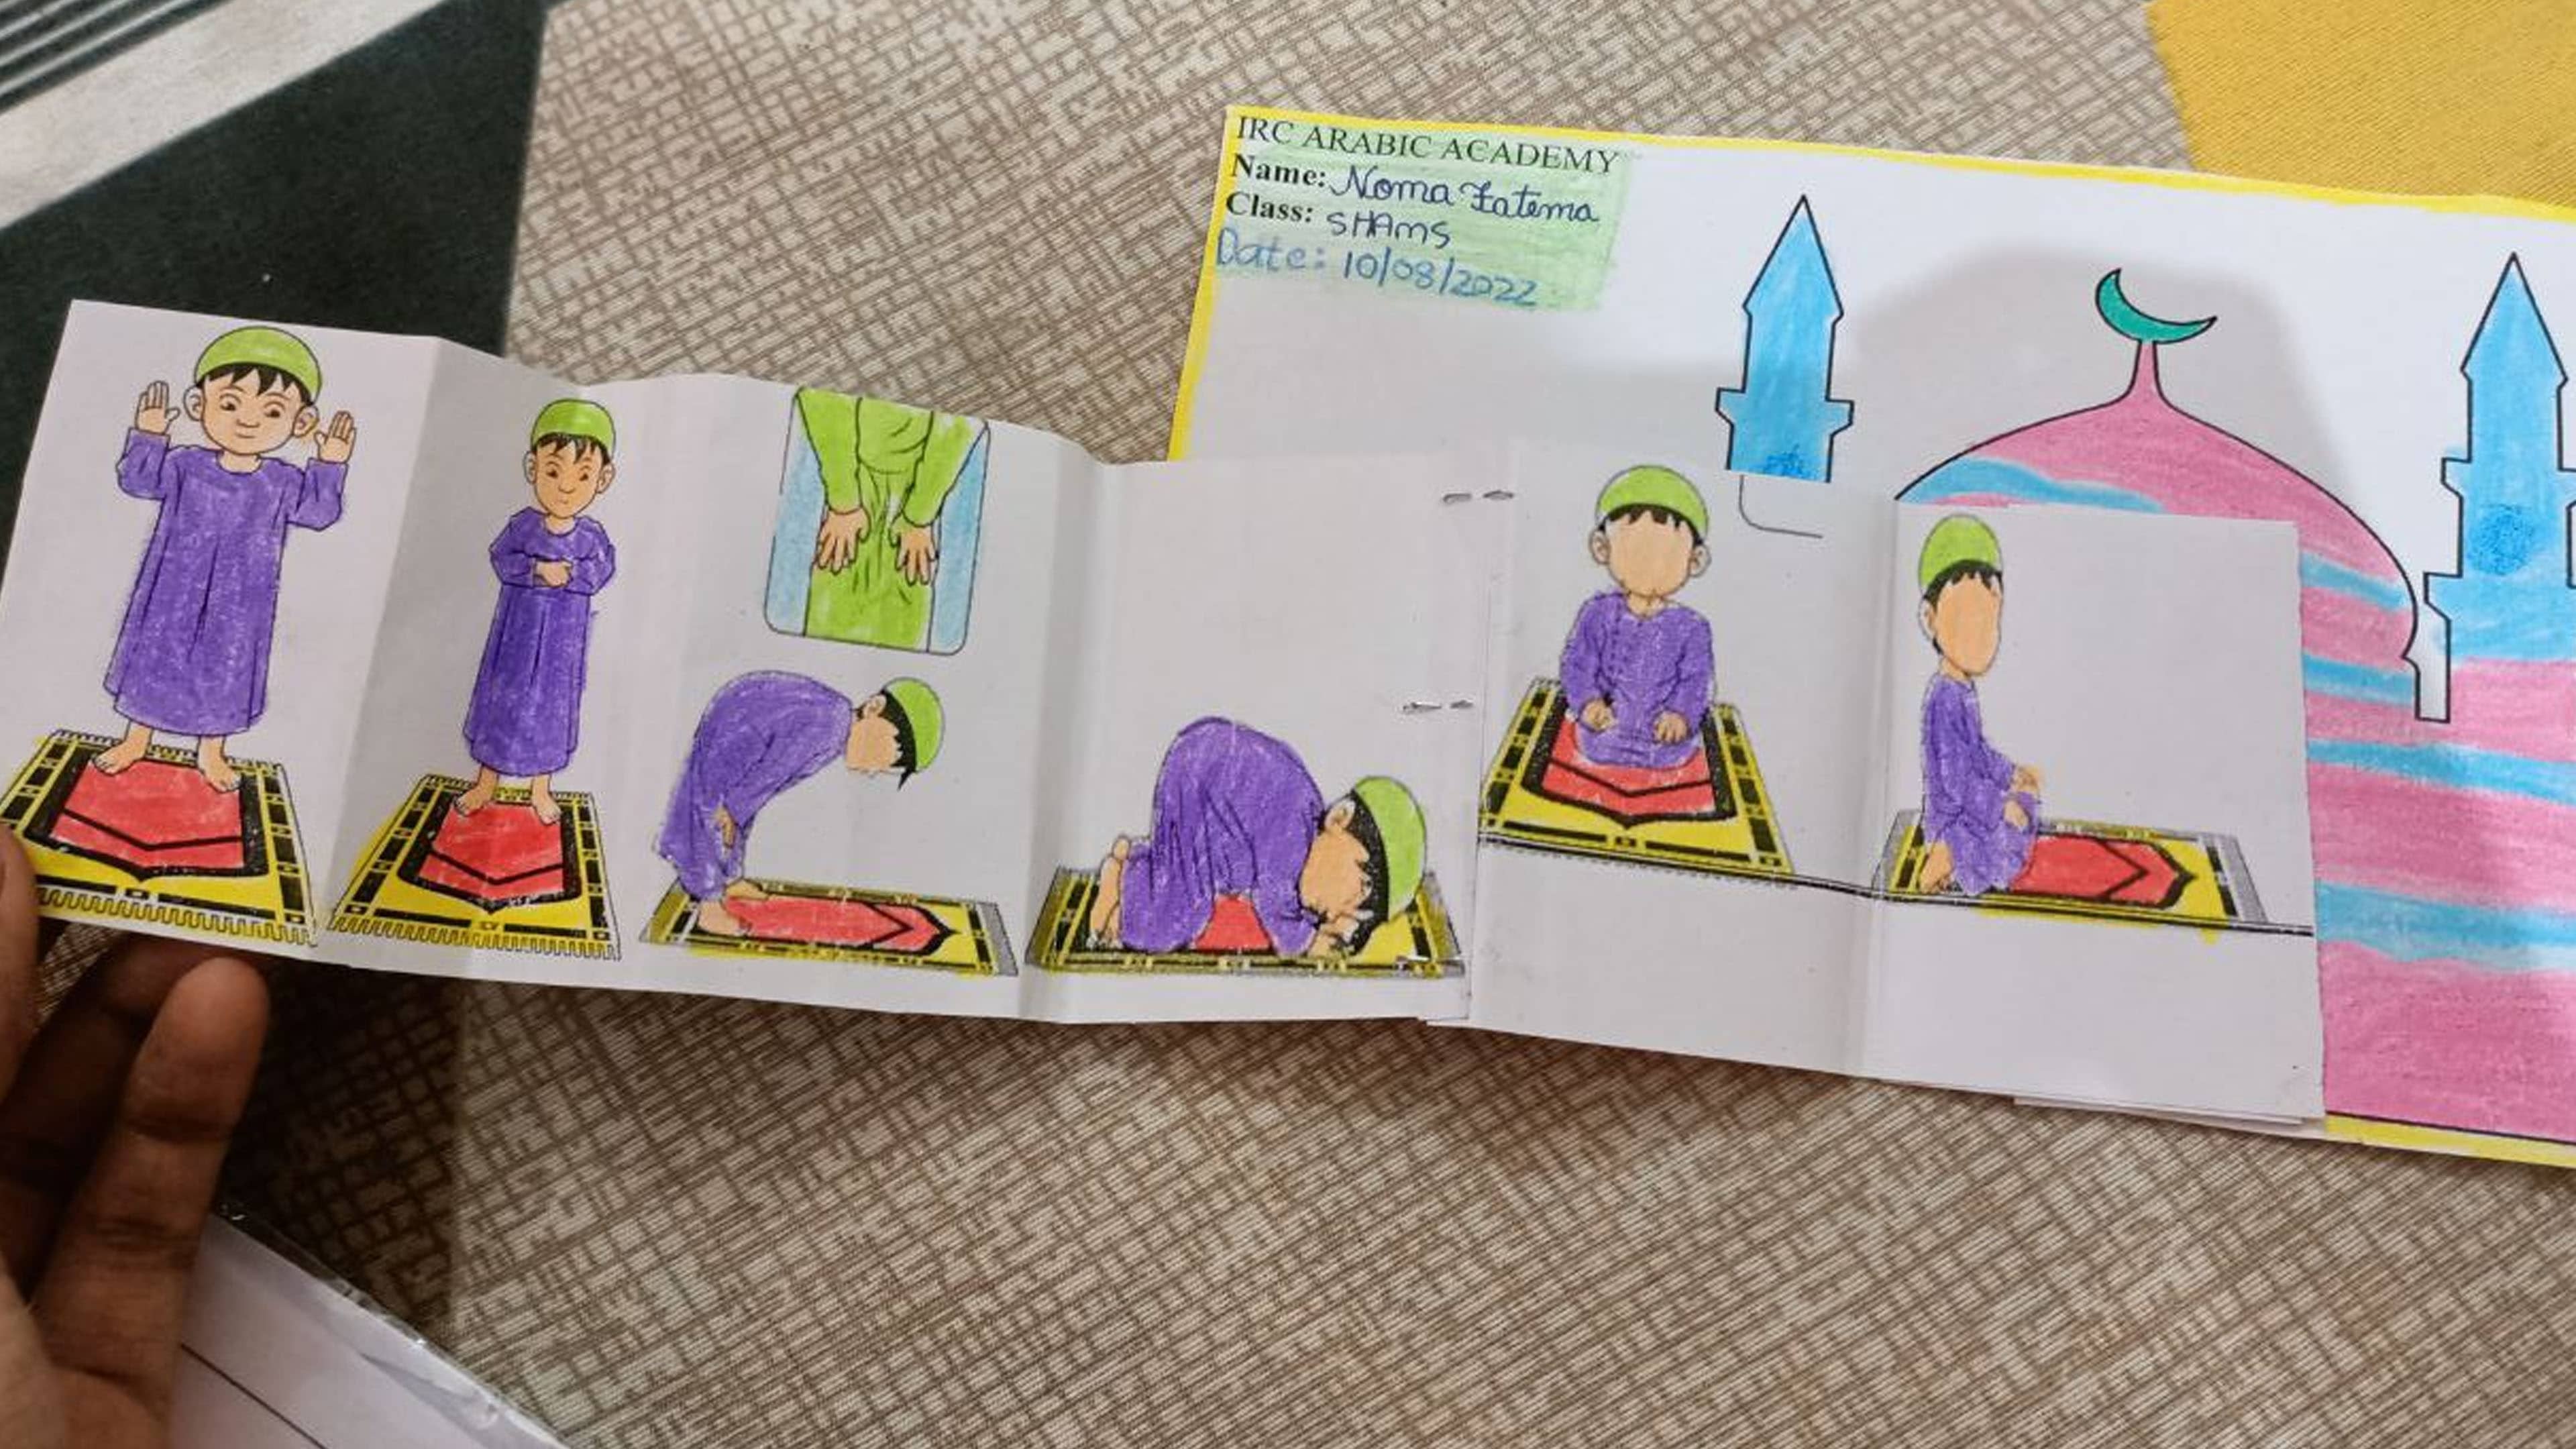 IRC ARABIC ACADEMY
Name: Noma Fatema
Class: SHAmS
Date: 10/08/2022